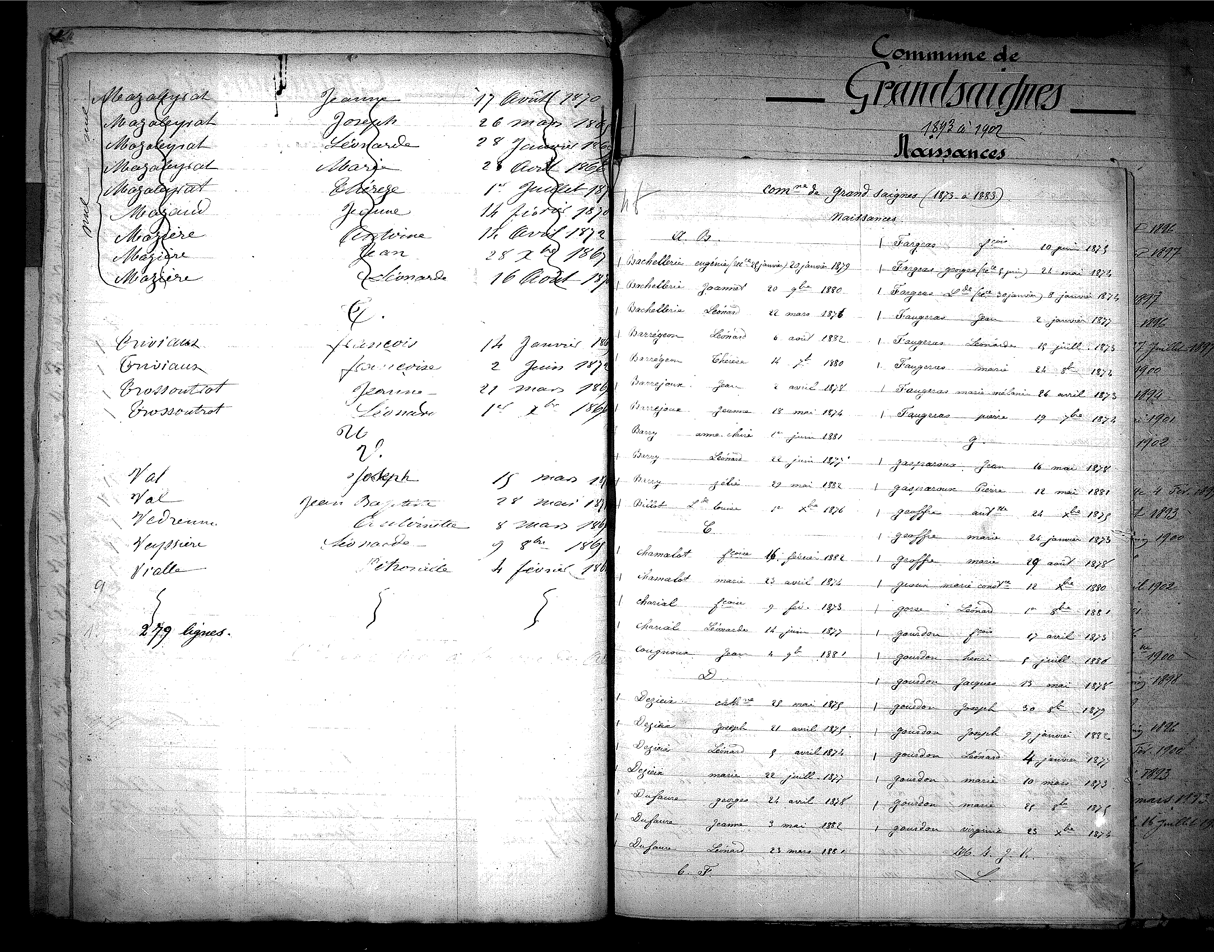 Mazaleyrat Jeanne 17 Août 1870
Mazaleyrat Joseph 26 mars 186
Mazaleyrat Léonarde 28 Janvier 186
Mazaleyrat Marie 28 Avril 186
Mazaleyrat Thérèse 1er Juillet 18
Mazaud Jeanne 14 février 1870
Mazière Antoine 14 Avril 1872
Mazière Jean 28 Xbre 1867
Mazière Léonarde 16 Août 18
nul
nul
T.
Triviaux François 14 Janvier 186
Triviaux françoise 2 Juin 1872
Trossoutrot Jeanne 21 mars 186
Trossoutrot Léonard 1er Xbre 186
U
V.
Val Joseph 15 mars 18
Val Jean Baptiste 28 mars 18
Vedrenne 8 mars 186
Veyssière Léonarde 9 8bre 186
Vialle Pétronille 4 février 186
279 lignes.
Commune de
Grandsaignes
1893 à 1902
Naissances
48
comne de Grand Saignes (1873 à 1883)
Naissances
A. B.
Bachellerie eugénie 20 janvier 1879
Bachellerie Jeannet 20 9bre 1880
Bachellerie Léonard 22 mars 1876
Barrégeon Léonard 6 août 1882
Barrégeon Thérèse 14 7b 1880
Barrejoux Jean 2 avril 1878
Barrejoux Jeanne 18 mai 1874
Barry anne 1er juin 1881
Berry Léonard 22 juin 1877
Berry 29 mai 1882
Lde Louise 1er Xbre 1876
C.
Chamalot fçoise 16 février 1882
Chamalot marie 23 avril 1874
charial fçoise 9 fév. 1873
charial Léonarde 14 juin 1877
Cougnoux Jean 4 9b 1881
D.
Dezieix 28 mai 1875
Dezieix Joseph 21 avril 1875
Dezieix Léonard 5 avril 1874
Dezieix marie 22 juill. 1877
Dufaure georges 24 avril 1878
Dufaure Jeanne 3 mai 1882
Dufaure Léonard 23 mars 1881
E. F.
Fargeas fçois 10 juin 1875
Fargeas georges 21 mai 1874
Fargeas Lde 8 janvier 1874
Faugeras Jean 2 janvier 1877
Faugeras Léonarde 15 juill. 1873
Faugeras marie 24 8b 1874
Faugeras marie mélanie 26 avril 1873
Faugeras pierre 19 7bre 1874
G.
gasparoux Jean 16 mai 1878
gasparoux Pierre 12 mai 1881
geoffre antne 24 Xbre 1875
geoffre marie 24 janvier 1873
geoffre marie 29 août 1878
marie constce 12 Xbre 1880
gorse Léonard 1er 8bre 1881
gourdon fçois 17 avril 1873
gourdon henri 5 juill 1880
gourdon Jacques 13 mai 1878
gourdon Joseph 30 8b 1879
gourdon Joseph 9 janvier 1882
gourdon Léonard 4 janvier 1877
gourdon marie 10 mars 1873
gourdon marie 25 8b 1875
gourdon virginie 23 Xbre 1874
H. I. J. K.
L.
1896
1897
1897
1896
Juillet 1897
1900
1894
1901
1902
4 Fév. 189
1893
1900
1902
1900
1898
1896
1900
1893
mars 1893
16 Juillet 19